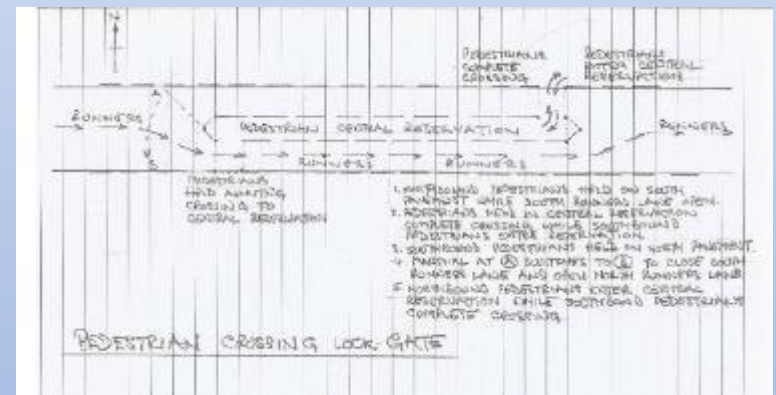 N
PEDESTRIANS COMPLETE CROSSING
PEDESTRIANS ENTER CENTRAL RESERVATION
RUNNERS
PEDESTRIAN CENTRAL RESERVATION
RUNNERS
RUNNERS
RUNNERS
PEDESTRIANS
HELD AWAITING
CROSSING TO
CENTRAL RESERVATION
1. NORTHBOUND PEDESTRIANS HELD ON SOUTH
PAVEMENT WHILE SOUTH RUNNERS LANE OPEN.
2. PEDESTRIANS HELD IN CENTRAL RESERVATION
COMPLETE CROSSING WHILE SOUTHBOUND
PEDESTRIANS ENTER RESERVATION.
3. SOUTHBOUND PEDESTRIANS HELD ON NORTH PAVEMENT.
4. MARSHAL AT TO CLOSE SOUTH
RUNNERS LANE AND OPEN NORTH RUNNERS LANE
5. NORTHBOUND PEDESTRIANS ENTER CENTRAL
RESERVATION WHILE SOUTHBOUND PEDESTRIANS
COMPLETE CROSSING.
PEDESTRIAN CROSSING LOCK GATE